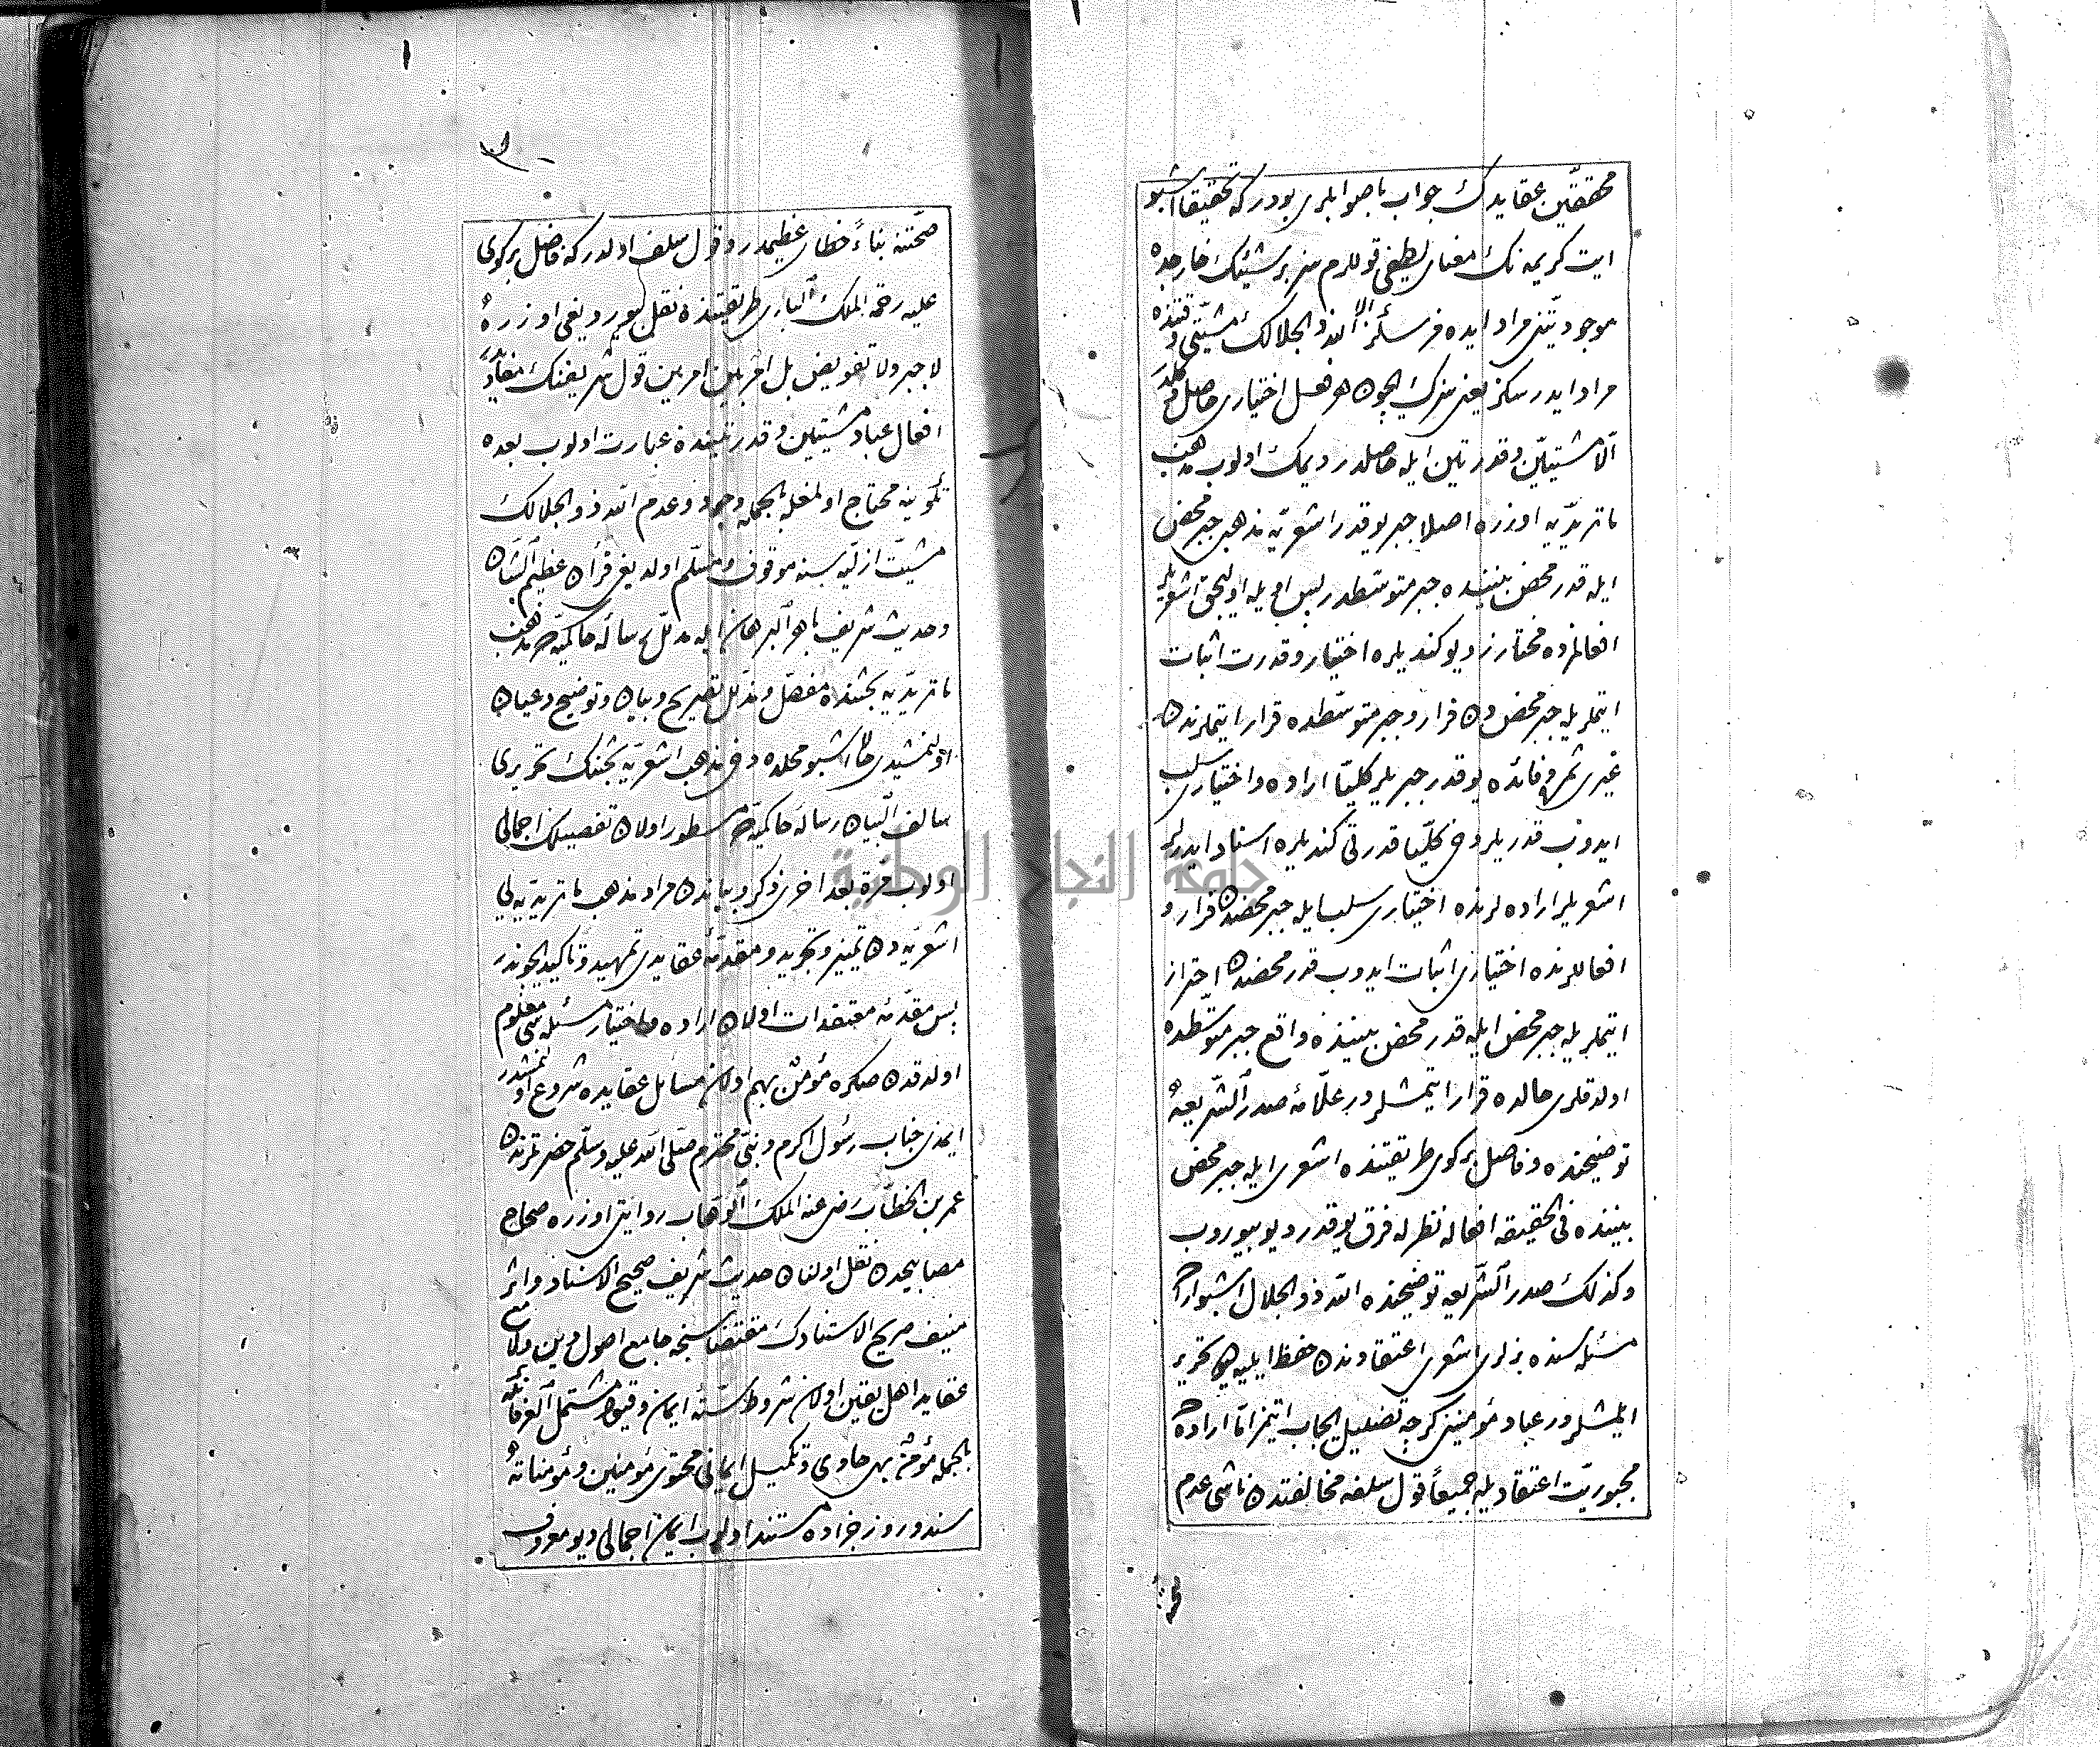 محققين عقايدك جواب باصوابلرى بودركه تحقيقا اشبو
ايت كريمه نك معناى لطيفى قوللرم سز بر شيئك خارجده
موجوديتنى مراد ايده مزسكز الا الله ذو الجلالك مشيتى وقتنده
مراد ايدرسكز يعنى سزك ايچون هر فعل اختيارى حاصل دكلدر
الا مشيتين وقدرتين ايله حاصلدر ديمك اولوب مذهب
ماتريديه اوزره اصلا جبر يوقدر اشعريه مذهبى جبر محض
ايله قدر محض بيننده جبر متوسطدر پس اويله اوليجق اشعريلر
افعالمزده مختارز ديو كنديلره اختيار وقدرت اثبات
ايتملريله جبر محضدن فرار وجبر متوسطده قرار ايتملرندن
غيرى ثمر وفائده يوقدر جبريلر كليا اراده واختيارى سلب
ايدوب قدريلر دخى كليا قدرتى كنديلره اسناد ايدرلر
اشعريلر اراده لرنده اختيارى سلب ايله جبر محضدن فرار و
افعاللرنده اختيارى اثبات ايدوب قدر محضدن احتراز
ايتملريله جبر محض ايله قدر محض بيننده واقع جبر متوسطده
اولدقلرى حالده قرار ايتمشلردر علامه صدر الشريعه
توضيحنده وفاضل بركوى طريقتنده اشعرى ايله جبر محض
بيننده فى الحقيقه افعاله نظرله فرق يوقدر ديو بيوروب
وكذلك صدر الشريعه توضيحنده الله ذو الجلال اشبو اراده
مسئله سنده بزلرى اشعرى اعتقادندن حفظ ايليه ديو تحرير
ايلمشلردر عباد مؤمنينى كرچه تضليل ايجاب ايتمز اما اراده ده
مجبوريت اعتقاديله جميعا قول سلفه مخالفتدن ناشى عدم
صحتنه بناء خطاى عظيمدر وقول سلف اولدركه فاضل بركوى
عليه رحمة الملك البارى طريقتنده نقل ديديغى اوزره
لا جبر ولا تفويض بل امر بين امرين قول شريفنك مفادى
افعال عباد مشيتين وقدرتيندن عبارت اولوب بعده
تكوينه محتاج اولمغله بالجمله وجود وعدم الله ذو الجلالك
مشيت ازليه سنه موقوف ومسلم اولديغى قرأن عظيم الشان
وحديث شريف باهر البرهان ايله مدلل رساله حاكميه مز مذهب
ماتريديه بحثنده مفصل ومذيل تصريح وبيان وتوضيح وعيان
اولنمشيدى حالا اشبو محلده دخى مذهب اشعريه بحثنك تحريرى
سالف البيان رساله حاكميه مزده مسطور اولان تفصيلك اجمالى
اولوب مرة بعد اخرى ذكر وبياندن مراد مذهب ماتريديه يى
اشعريه دن تمييز وتجريد ومقدمه عقايدى تمهيد وتاكيد ايچوندر
پس مقدمه معتقدات اولان اراده واختيار مسئله سى معلوم
اولدقدن صكره مؤمن بهم اولان مسائل عقايده شروع اولنمشدر
ايمدى جناب رسول اكرم ونبى محترم صلى الله عليه وسلم حضرتلرندن
عمر بن الخطاب رضى عنه الملك الوهاب روايتى اوزره صحاح
مصابيحدن نقل اولنان حديث شريف صحيح الاسناد واثر
منيف صريح الاستنادك مقتضاسنجه جامع اصول دين
عقايد اهل يقين اولان شروط سته ايمان وقيود مشتمل
بالجمله مؤمن بهى حاوى وتكميل ايمانى محتوى مؤمنين ومؤمناته
سند وروز جزاده مستند اولوب ايمان اجمالى ديو معروف
صحتنه